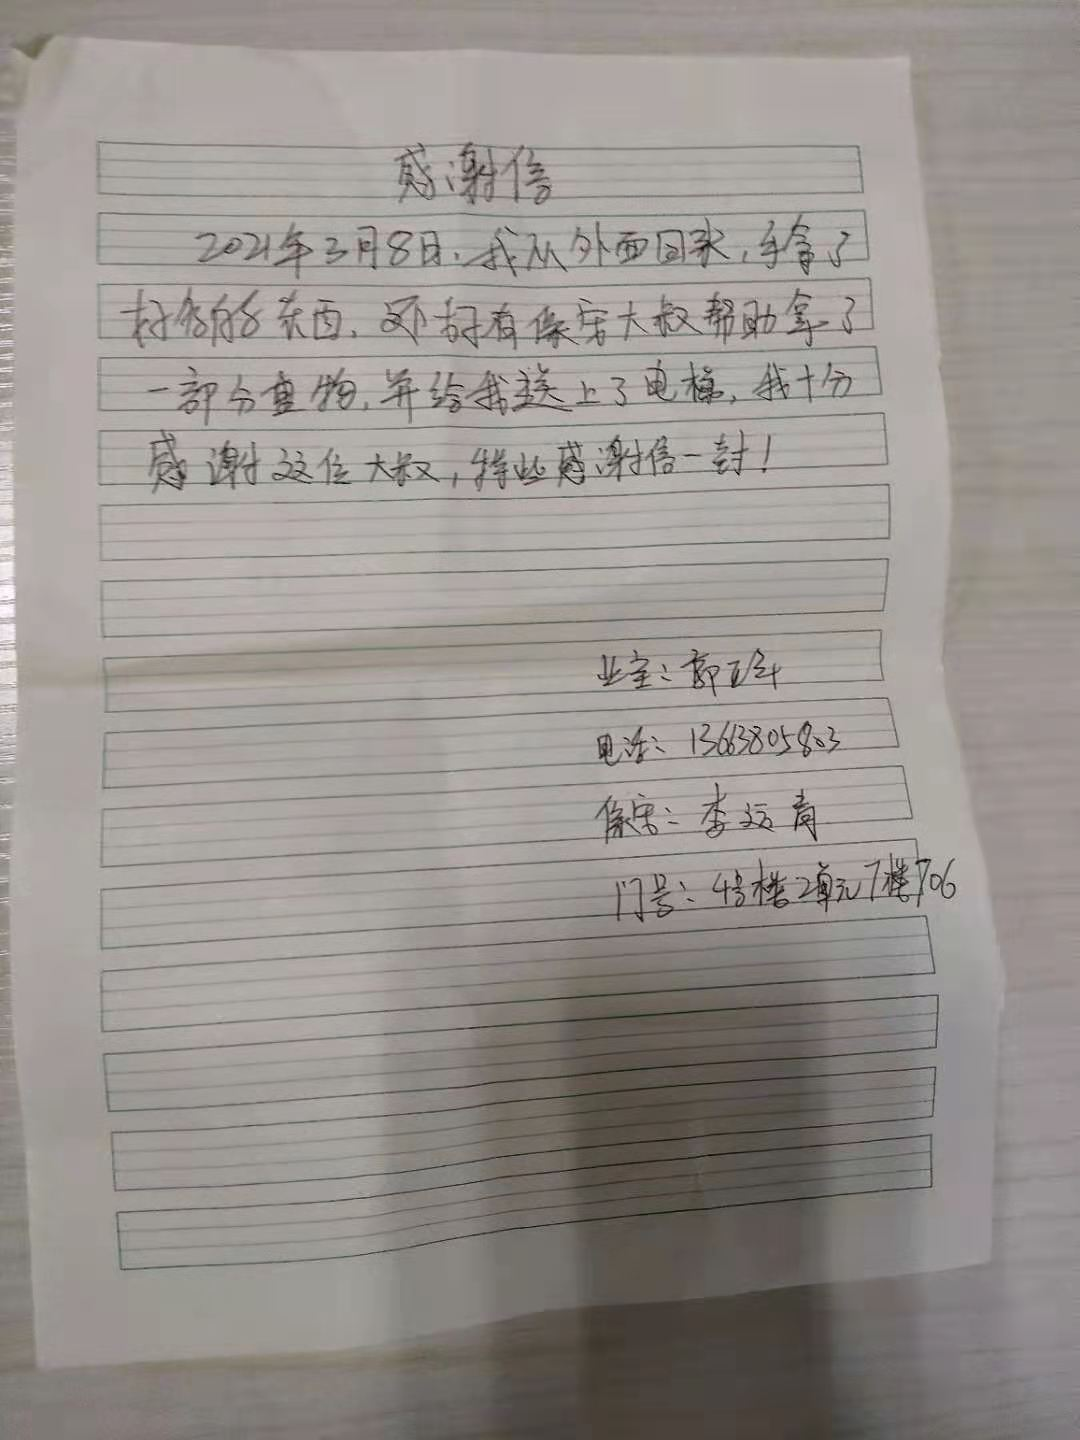 感谢信
2021年3月8日、我从外面回来,手拿了
好多的东西,还好有保安大叔帮助拿了
一部分重物,并给我送上了电梯,我十分
感谢这位大叔,特此感谢信一封!
业主:郭
电话:13663805803
保安:李
门号:4号楼2单元7楼706